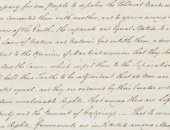 for one People to dissolve the Political Bands
connected them with another, and to assume among
of the Earth, the separate and equal Station to
Laws of Nature and Nature's God entitle them, a
to the Opinions of Mankind requires that they
the Causes which impel them to the Separation
hold these Truths to be self evident, that all Men are
equal, that they are endowed by their Creator with
unalienable Rights, that among these are
and the Pursuit of Happiness — That to
Rights Governments are instituted among